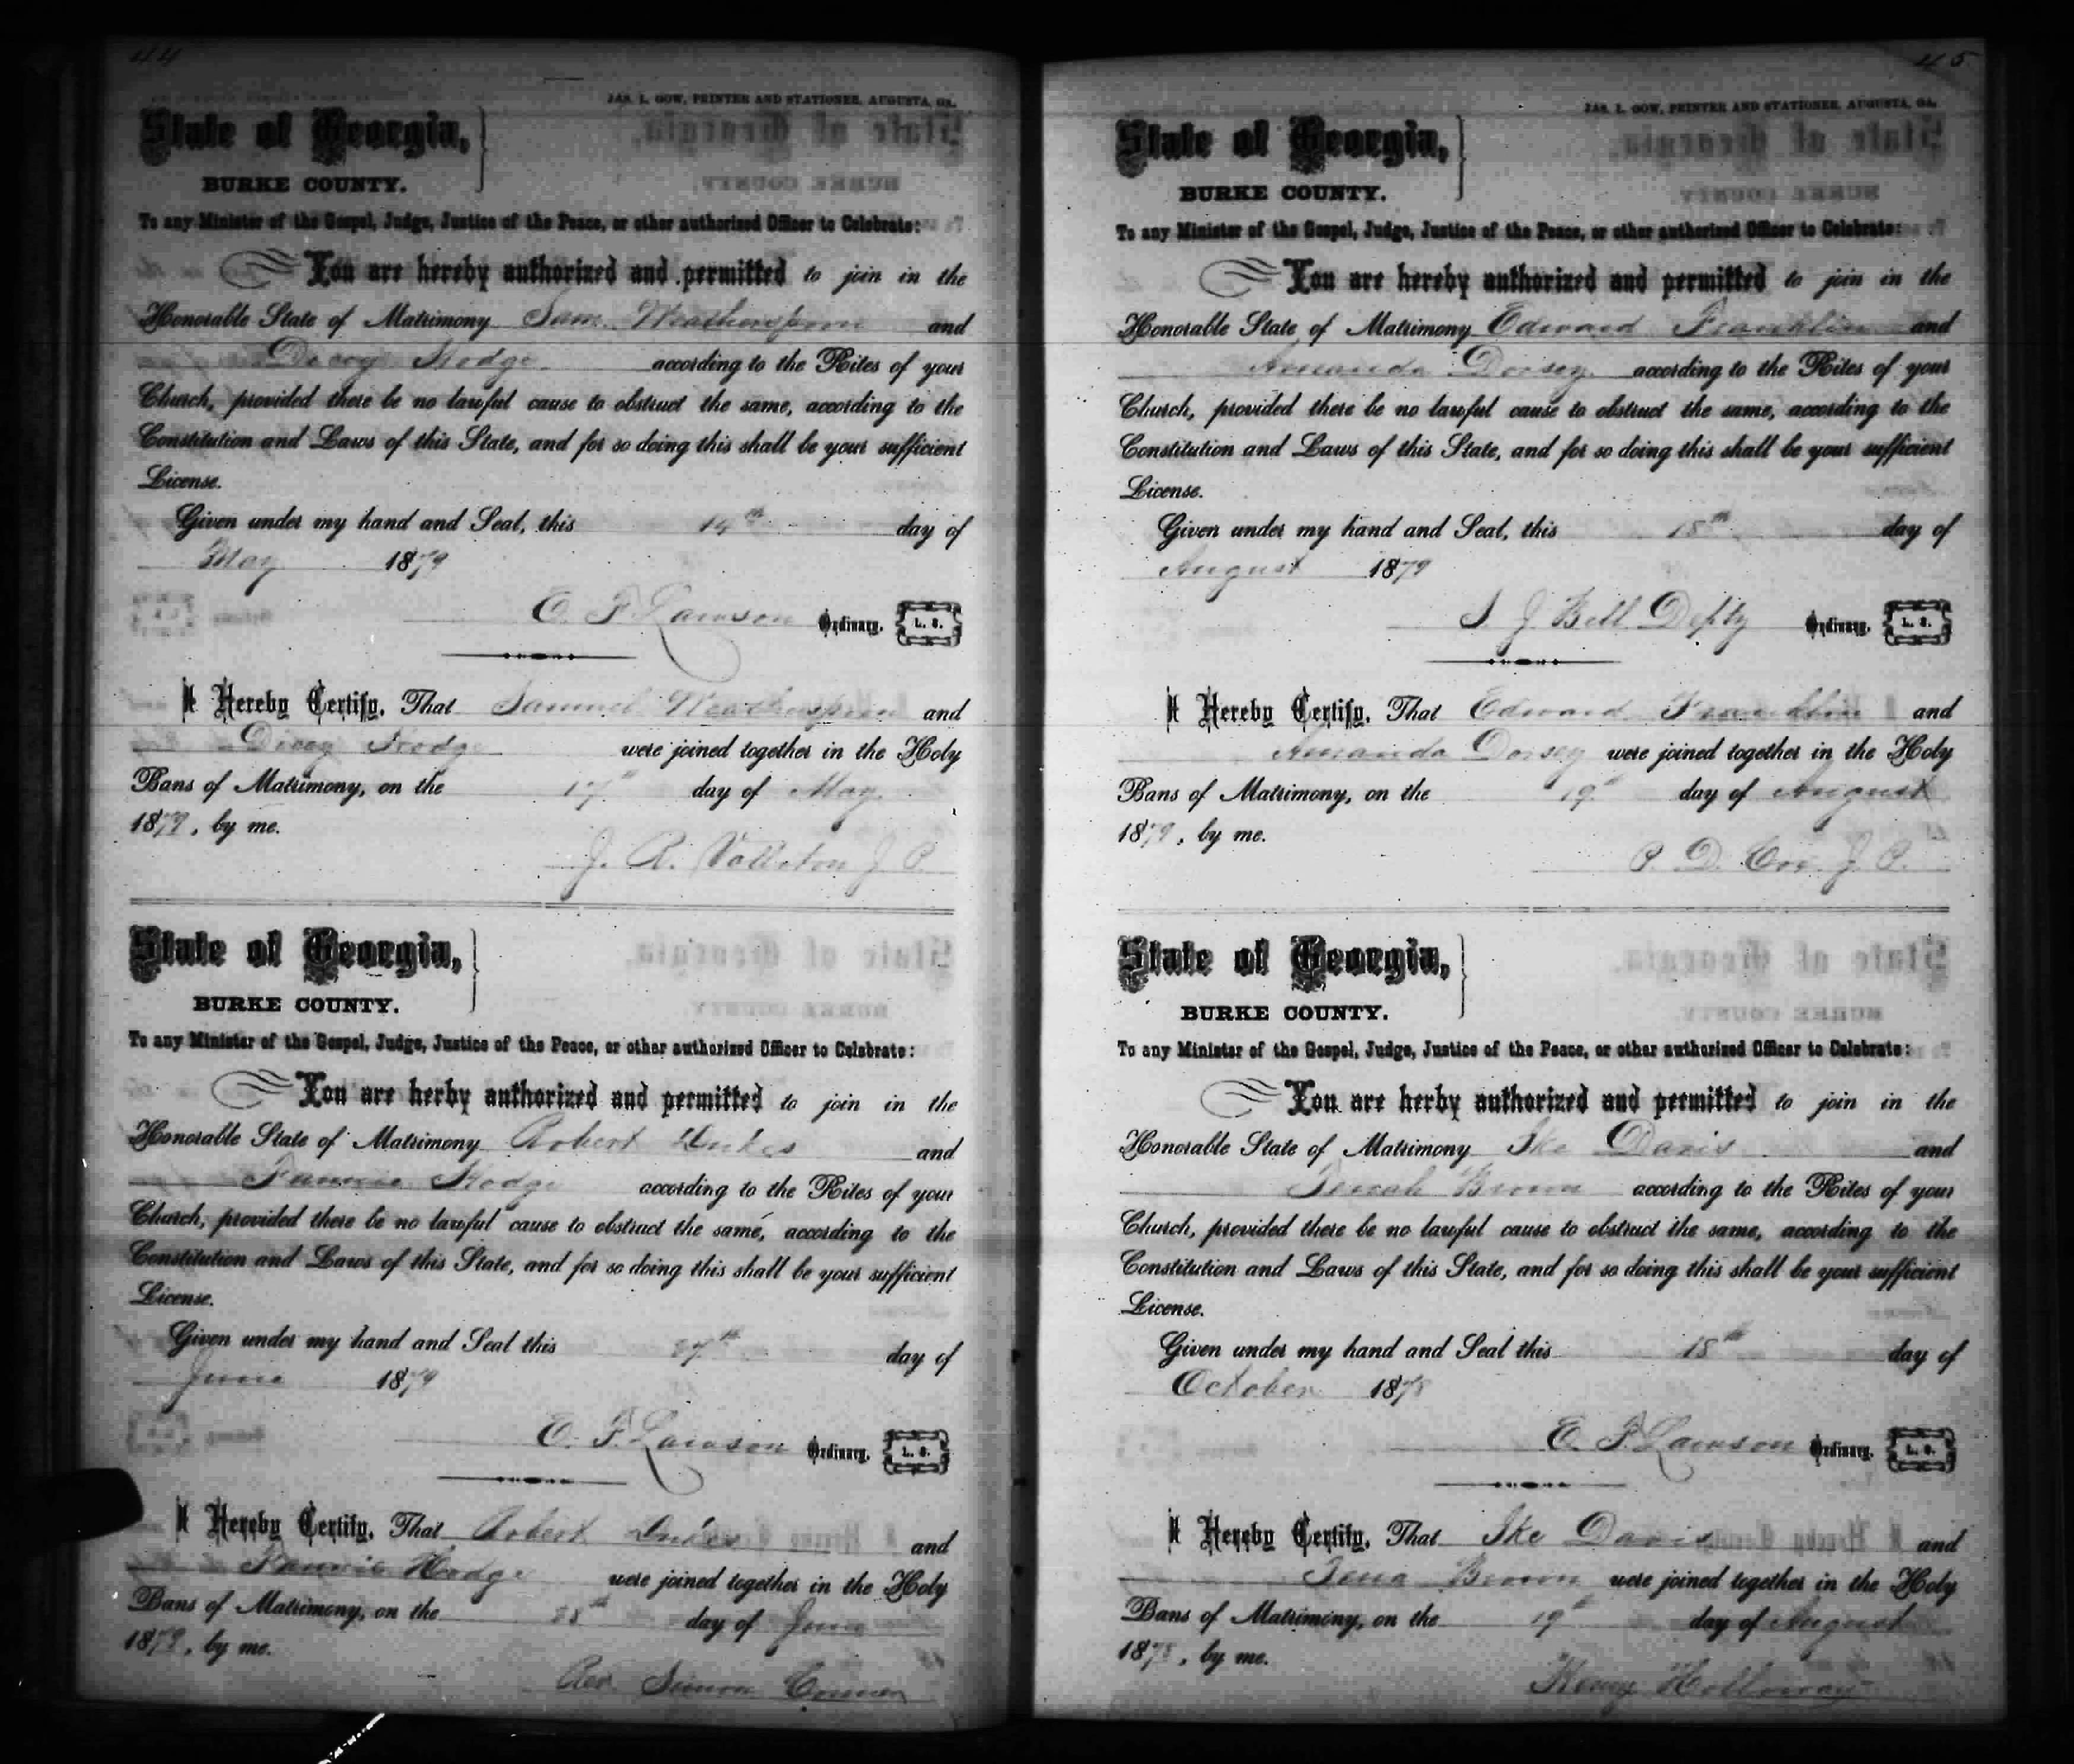 44
JAS. L. GOW, PRINTER AND STATIONER, AUGUSTA, GA.
State of Georgia,
BURKE COUNTY.
To any Minister of the Gospel, Judge, Justice of the Peace, or other authorized Officer to Celebrate:
You are hereby authorized and permitted to join in the
Honorable State of Matrimony Sam. Weatherspoon and
Dicey Hodge according to the Rites of your
Church, provided there be no lawful cause to obstruct the same, according to the
Constitution and Laws of this State, and for so doing this shall be your sufficient
License.
Given under my hand and Seal, this 14th day of
May 1879
E. F. Lawson Ordinary. L. S.
I Hereby Certify, That Samuel Weatherspoon and
Dicey Hodge were joined together in the Holy
Bans of Matrimony, on the 17th day of May
1879, by me.
J. R. J. P.
State of Georgia,
BURKE COUNTY.
To any Minister of the Gospel, Judge, Justice of the Peace, or other authorized Officer to Celebrate:
You are herby authorized and permitted to join in the
Honorable State of Matrimony Robert Dukes and
Fannie Hodge according to the Rites of your
Church, provided there be no lawful cause to obstruct the same, according to the
Constitution and Laws of this State, and for so doing this shall be your sufficient
License.
Given under my hand and Seal this 27th day of
June 1879
E. F. Lawson Ordinary. L. S.
I Hereby Certify, That Robert Dukes and
Fannie Hodge were joined together in the Holy
Bans of Matrimony, on the 28th day of June
1879, by me.
Rev. Simon Conner
45
JAS. L. GOW, PRINTER AND STATIONER, AUGUSTA, GA.
State of Georgia,
BURKE COUNTY.
To any Minister of the Gospel, Judge, Justice of the Peace, or other authorized Officer to Celebrate:
You are hereby authorized and permitted to join in the
Honorable State of Matrimony Edward Franklin and
Amanda Dorsey according to the Rites of your
Church, provided there be no lawful cause to obstruct the same, according to the
Constitution and Laws of this State, and for so doing this shall be your sufficient
License.
Given under my hand and Seal, this 18th day of
August 1879
S. J. Bell Depty Ordinary. L. S.
I Hereby Certify, That Edward Franklin and
Amanda Dorsey were joined together in the Holy
Bans of Matrimony, on the 19th day of August
1879, by me.
P. D. Cox J. P.
State of Georgia,
BURKE COUNTY.
To any Minister of the Gospel, Judge, Justice of the Peace, or other authorized Officer to Celebrate:
You are herby authorized and permitted to join in the
Honorable State of Matrimony Ike Davis and
Brown according to the Rites of your
Church, provided there be no lawful cause to obstruct the same, according to the
Constitution and Laws of this State, and for so doing this shall be your sufficient
License.
Given under my hand and Seal this 18th day of
October 1878
E. F. Lawson Ordinary. L. S.
I Hereby Certify, That Ike Davis and
Brown were joined together in the Holy
Bans of Matrimony, on the 19th day of August
1878, by me.
Henry Holloway